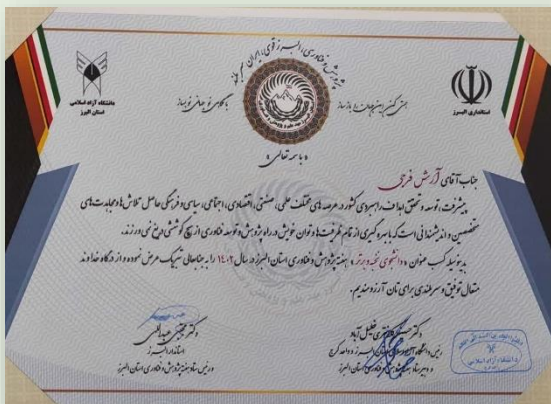 پژوهش و فناوری، البرز قوی، ایران سهم جهانی
دانشگاه آزاد اسلامی
استان البرز
استانداری البرز
همتی کنیم و این جهان را باز بساز
با کلامی نو جهانی نو بساز
«باسمه تعالی»
جناب آقای آرش فرجی
پیشرفت، توسعه و تحقق اهداف راهبردی کشور در عرصه های مختلف علمی، صنعتی، اقتصادی، اجتماعی، سیاسی و فرهنگی حاصل تلاش ها و مجاهدت های
متخصصین و اندیشمندانی است که با بهره گیری از تمام ظرفیت ها و توان خویش در راه پژوهش و توسعه فناوری از هیچ کوششی دریغ نمی ورزند.
بدینوسیله کسب عنوان «دانشجوی نخبه و برتر» هفته پژوهش و فناوری استان البرز در سال ۱۴۰۲ را به جنابعالی تبریک عرض نموده و از درگاه خداوند
متعال توفیق و سربلندی برای تان آرزومندیم.
دکتر مجتبی عبداللهی
استاندار البرز
و رئیس ستاد هفته پژوهش و فناوری استان البرز
دکتر حسن دختری خلیل آباد
رئیس دانشگاه آزاد اسلامی استان البرز و واحد کرج
و دبیر ستاد هفته پژوهش و فناوری استان البرز
دانشگاه آزاد اسلامی